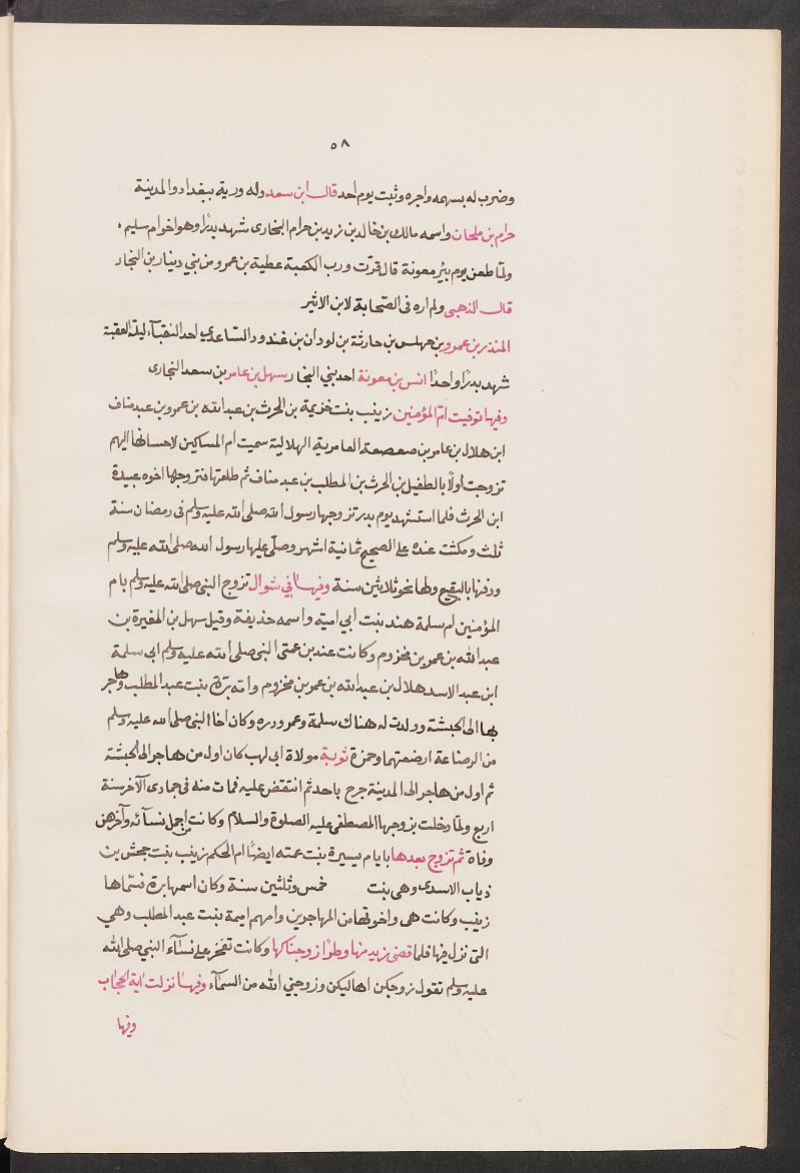 ٥٨
وضرب له بسهمه واجره وثبت يوم احد قال ابن سعد وله ورية ببغداد والمدينة
حرام بن ملحان واسمه مالك بن خالد بن زيد بن حرام النجارى شهد بدرًا وهو اخو ام سليم
ولمّا طعن يوم بئر معونة قال فزت ورب الكعبة عطية بن عمرو من بني دينار بن النجار
قال الذهبى ولم اره فى الصّحابة لابن الاثير
المنذر بن عمرو بن حارثة بن لودان بن السّاعدي احد النقبآء ليلة العقبة
شهد بدرًا واحدًا انس بن معونة احد بني النجار سهل بن عامر بن سعد النجارى
وفيها توفيت امّ المؤمنين زينب بنت خزيمة بن الحرث بن عبد الله بن عمرو بن عبد مناف
ابن هلال بن عامر بن صعصعة العامرية الهلالية سميت ام المساكين لاحسانها اليهم
تزوجت اولًا بالطفيل بن الحرث بن المطلب بن عبد مناف ثم طلقها فتزوجها اخوه عبيدة
ابن الحرث فلما استشهد يوم بدر تزوجها رسول الله صلى الله عليه وسلم فى رمضان سنة
ثلث ومكثت عنده على الصحيح ثمانية اشهر وصلّى عليها رسول الله صلى الله عليه وسلم
ودفنها بالبقيع ولها نحو ثلاثين سنة وفيها في شوال تزوج النبى صلى الله عليه وسلم بام
المؤمنين ام سلمة هند بنت ابي امية واسمه حذيفة وقيل سهل بن المغيرة بن
عبد الله بن عمر بن مخزوم وكانت عند بن عمتى النبى صلى الله عليه وسلم ابى سلمة
ابن عبد الاسد هلال بن عبد الله بن عمر بن مخزوم وامّه برّة بنت عبد المطلب وهاجر
بها الى الحبشة وولدت له هناك سلمة وعمر ودره وكان اخا النبى صلى الله عليه وسلم
من الرضاعة ارضعتهما وحمزة ثوبة مولاة ابى لهب كان اول من هاجر الى الحبشة
ثم اول من هاجر الى المدينة جرح باحد ثم انتقض عليه فمات منه فى جمادى الآخر سنة
اربع ولمّا دخلت بزوجها المصطفى عليه الصلوة والسلام وكانت من اجمل نسآئه وآخرهن
وفاة ثم تزوج بعدها بايام يسيرة بنت عمته ايضًا ام الحكم زينب بنت جحش بن
ذياب الاسدى وهى بنت خمس وثلثين سنة وكان اسمها برة فسمّاها
زينب وكانت هى واخوتها من المهاجرين وامهم اميمة بنت عبد المطلب وهي
التى نزل فيها فلما قضى زيد منها وطرًا زوجناكها وكانت تفخر على نسآء النبي صلى الله
عليه وسلم تقول زوجكن اهاليكن وزوجني الله من السمآء وفيها نزلت اية الحجاب
وفيها